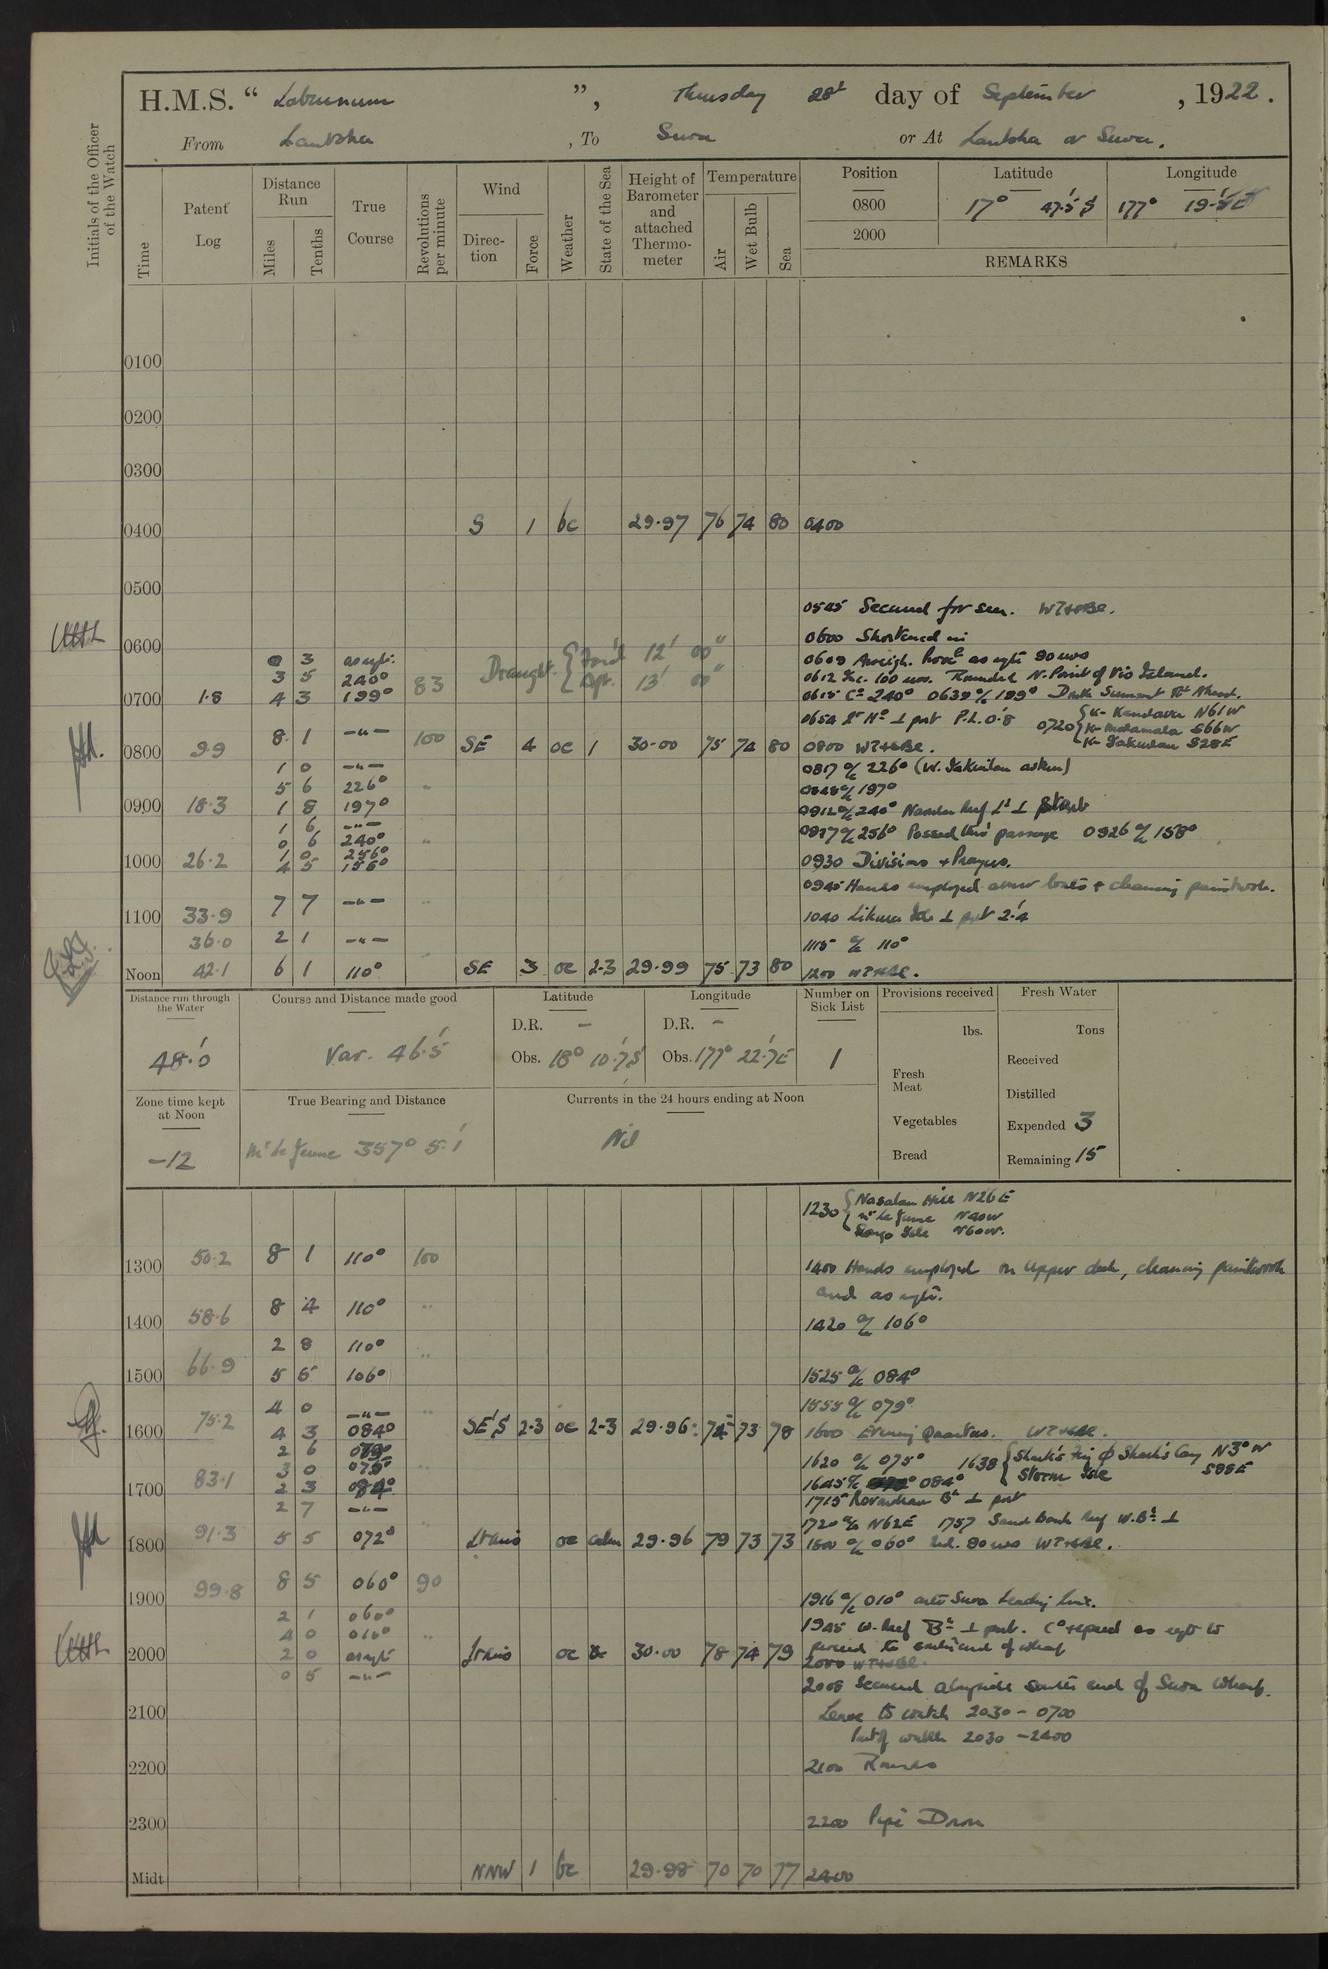 H.M.S. “ Laburnum ”, Thursday 28th day of September, 1922.
From Lautoka, To Suva or At Lautoka or Suva.
Initials of the Officer of the Watch
Time
Patent Log
Distance Run
Miles
Tenths
True Course
Revolutions per minute
Wind
Direction
Force
Weather
State of the Sea
Height of Barometer and attached Thermometer
Temperature
Air
Wet Bulb
Sea
Position Latitude Longitude
0800 17° 47.5' S 177° 19. E
2000
REMARKS
0100
0200
0300
0400 S 1 bc 29.97 76 74 80 0400
0500
0545 Secured for sea. WT+BL.
0600 0600 Shortened in
0 3 as reqte. Draught { For'd 12' 00" 0609 Aweigh. as reqte 90 revs
3 5 240° Aft. 13' 00" 0612 100 revs. Rounded N. Point of Vio Island.
0700 1.8 4 3 199° 83 0615 Co 240° 0639 a/c 199°
0654 port P.L. 0.8 0720 { Kandavu N61W
S66W
S28E
0800 9.9 8 1 —"— 100 SE 4 oc 1 30.00 75 74 80 0800 WT+BL.
1 0 —"— 0817 a/c 226°
5 6 226° " 0848 a/c 197°
0900 18.3 1 8 197° 0912 a/c 240° Reef ⊥
1 6 —"— 0917 a/c 256° Passed thro' passage 0926 a/c 158°
0 6 240° "
1 0 256°
1000 26.2 4 5 158° 0930 Divisions + Prayers.
0945 Hands employed boats + cleaning paintwork.
1100 33.9 7 7 —"— " 1040 Likuri Ide ⊥ port 2.4
36.0 2 1 —"— 1115 a/c 110°
Noon 42.1 6 1 110° " SE 3 oc 2-3 29.99 75 73 80 1200 WT+BL.
Distance run through the Water
48.0
Course and Distance made good
Var. 46.5
Latitude
D.R. —
Obs. 18° 10.7 S
Longitude
D.R. —
Obs. 177° 22.7 E
Number on Sick List
1
Provisions received
lbs.
Fresh Meat
Vegetables
Bread
Fresh Water
Tons
Received
Distilled
Expended 3
Remaining 15
Zone time kept at Noon
-12
True Bearing and Distance
357° 5.1
Currents in the 24 hours ending at Noon
Nil
1230 { Hill N26E
N40W
N60W.
1300 50.2 8 1 110° 100 1400 Hands employed on upper deck, cleaning paintwork
and as reqte.
1400 58.6 8 4 110° " 1420 a/c 106°
2 8 110°
1500 66.9 5 5 106° " 1525 a/c 084°
4 0 —"— 1555 a/c 079°
1600 75.2 4 3 084° " SE'S 2-3 oc 2-3 29.96 74 73 78 1600 Evening Quarters. WT+BL.
2 6 079° 1620 a/c 075° 1638 { Shark's Fin ϕ N3°W
3 0 075° Storm Isle S88E
1700 83.1 2 3 084° " 1645 a/c 084°
2 7 —"— 1715 Rovondrau B. ⊥ port
1720 a/c N62E 1757 Sand Bank Reef W.Bn ⊥
1800 91.3 5 5 072° Lt airs oc calm 29.96 79 73 73 1800 a/c 060° 90 revs WT+BL.
1900 99.8 8 5 060° 90 1916 a/c 010° onto Suva Leading Line.
2 1 060° 1945 W. Reef Bn ⊥ port. Co + speed as reqte to
4 0 010° " proceed to south end of wharf
2000 2 0 as reqte Lt airs oc 30.00 78 74 79 2000 WT+BL.
0 5 —"— 2008 Secured alongside south end of Suva Wharf.
2100 Leave to watch 2030 – 0700
Part of watch 2030 – 2400
2200 2100 Rounds
2300 2200 Pipe Down
Midt NNW 1 bc 29.98 70 70 77 2400